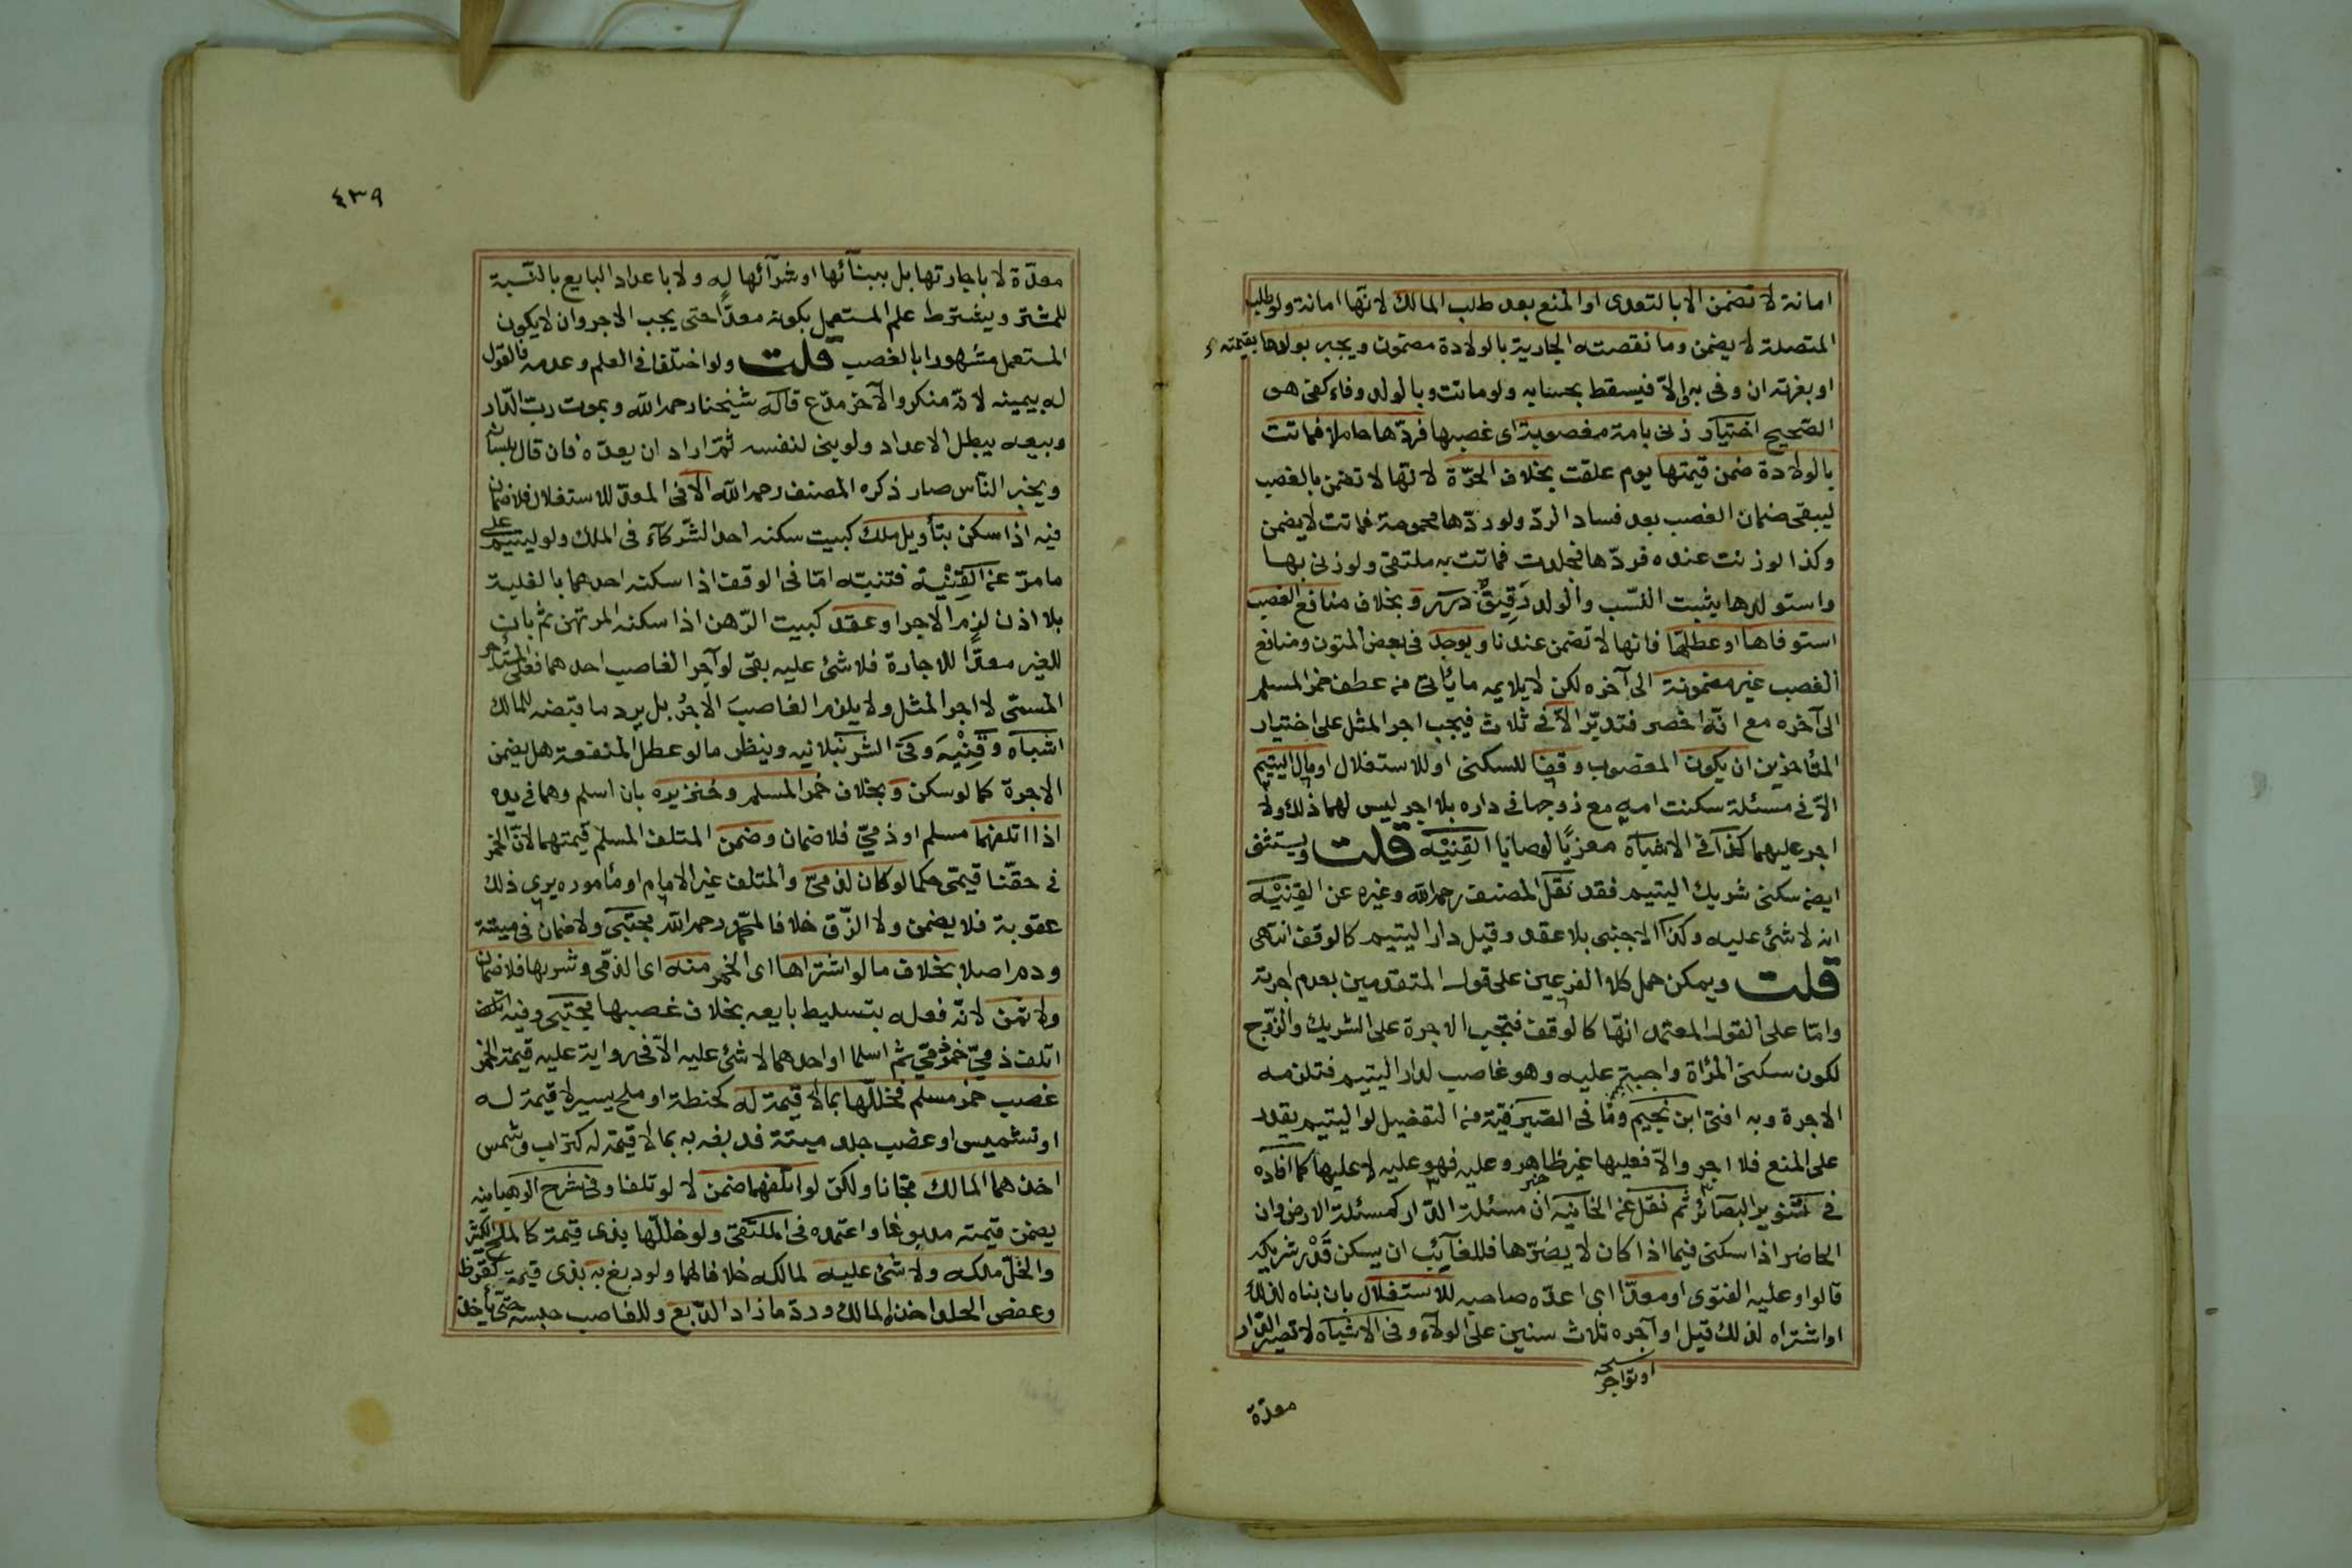 امانة لا تضمن الا بالتعدى او المنع بعد طلب المالك لانها امانة ولو طلب
المتصلة لا يضمن وما نقصته الجارية بالولادة مضمون ويجبر بولدها بقيمته
او بغرته ان وفى به والّا فيسقط بحسابه ولو ماتت وبالولد وفاء كفى هو
الصّحيح اختيار زنى بامة مغصوبة اى غصبها فردّها حاملا فماتت
بالولادة ضمن قيمتها يوم علقت بخلاف الحرّة لانّها لا تضمن بالغصب
ليبقى ضمان الغصب بعد فساد الردّ ولو ردّها محمومة فماتت لا يضمن
وكذا لو زنت عنده فردّها فجلدت فماتت به ملتقى ولو زنى بها
واستولدها يثبت النّسب والولد رقيق درر و بخلاف منافع الغصب
استوفاها او عطلها فانها لا تضمن عندنا ويوجد فى بعض المتون ومنافع
الغصب غير مضمونة الى آخره لكن لا يلايمه ما يأتى من عطف خمر المسلم
الى آخره مع انّه اخصر فتدبّر الّا فى ثلاث فيجب اجر المثل على اختيار
المتأخرين ان يكون المغصوب وقفا للسكنى او للاستغلال او مال اليتيم
الّا فى مسئلة سكنت امه مع زوجها فى داره بلا اجر ليس لهما ذلك ولا
اجر عليهما كذا فى الاشباه معزيًا لوصايا القِنْيَه قلت ويستثنى
ايضا سكنى شريك اليتيم فقد نقل المصنف رحمه الله وغيره عن القِنْيَه
انه لا شئ عليه وكذا الاجنبى بلا عقد وقيل دار اليتيم كالوقف انتهى
قلت ويمكن حمل كلا الفرعين على قول المتقدمين بعدم اجرة
وامّا على القول المعتمد انّها كالوقف فتجب الاجرة على الشريك والزّوج
لكون سكنى المرأة واجبة عليه وهو غاصب لدار اليتيم فتلزمه
الاجرة وبه افتى ابن نجيم وما فى الصّيرفيّة من التفصيل لو اليتيم يقدر
على المنع فلا اجر والّا فعليها غير ظاهر وعليه فهو عليه لا عليها كما افاده
فى تنوير البصائر ثم نقل عن الخانيه ان مسئلة الدّار كمسئلة الارض وان
الحاضر اذا سكنى فيما اذا كان لا يضرّها فللغآئب ان يسكن قدْر شريكه
قالوا وعليه الفتوى او معدّا اى اعدّه صاحبه للاستغلال بان بناه لذلك
او اشتراه لذلك قيل او آجره ثلاث سنين على الولآء وفى الاشباه لا تصير الدّار
معدّة
٤٣٩
معدّة لا باجارتها بل ببنآئها او شرآئها له ولا باعداد البايع بالنّسبة
للمشتر ويشترط علم المستعمل بكونه معدًّا حتى يجب الاجر وان لا يكون
المستعمل مشهورا بالغصب قلت ولو اختلفا فى العلم وعدمه فالقول
له بيمينه لانّه منكر والآخر مدّع قاله شيخنا رحمه الله وبموت ربّ الدّار
وبيعه يبطل الاعداد ولو بنى لنفسه ثمّ اراد ان يعدّه فان قال بلسانه
ويخبر النّاس صار ذكره المصنف رحمه الله الّا فى المعدّ للاستغلال فلا ضمان
فيه اذا سكن بتأويل ملك كبيت سكنه احد الشّركآء فى الملك ولو ليتيم على
ما مرّ عن القِنْيَه فتنبّه امّا فى الوقف اذا سكنه احدهما بالغلبة
بلا اذن لزم الاجر او عقد كبيت الرّهن اذا سكنه المرتهن ثم بان
للغير معدًّا للاجارة فلا شئ عليه بقى لو آجر الغاصب احدهما فعلى المستأجر
المسمّى لا اجر المثل ولا يلزم الغاصبَ الاجرُ بل يرد ما قبضه للمالك
اشباه وقِنْيَه وفى الشرنبلانيه وينظر ما لو عطل المنفعة هل يضمن
الاجرة كما لو سكن و بخلاف خمر المسلم وخنزيره بان اسلم وهما فى يده
اذا اتلفهما مسلم او ذمىّ فلا ضمان وضمن المتلف المسلم قيمتهما لانّ الخمر
فى حقّنا قيمتى حكما لو كان لذمىّ والمتلف غير الامام او مأموره يرى ذلك
عقوبة فلا يضمن ولا الزّق خلافا لمحمّد رحمه الله مجتبى ولا ضمان فى ميتة
ودم اصلا بخلاف ما لو اشتراها اى الخمر منه اى الذمّى وشربها فلا ضمان
ولا ثمن لانّه فعله بتسليط بايعه بخلاف غصبها مجتبى وفيه اتلف
اتلف ذمىّ خمر ذمىّ ثم اسلما او احدهما لا شئ عليه الّا فى رواية عليه قيمة الخمر
غصب خمر مسلم فخلّلها بما لا قيمة له كحنطة او ملح يسير لا قيمة له
او تشميس او غصب جلد ميتة فدبغه به بما لا قيمة له كتراب وشمس
اخذهما المالك مجّانا ولكن لو اتلفهما ضمن لا لو تلفا وفى شرح الوهبانيه
يضمن قيمته مدبوغا واعتمده فى الملتقى ولو خلّلها بذى قيمة كالملح الكثير
والخلّ ملكه ولا شئ عليه لمالكه خلافا لهما ولو دبغ به بذى قيمة كقرظ
وعفص الجلد اخذه المالك وردّ ما زاد الدّبغ وللغاصب حبسه حتّى يأخذ